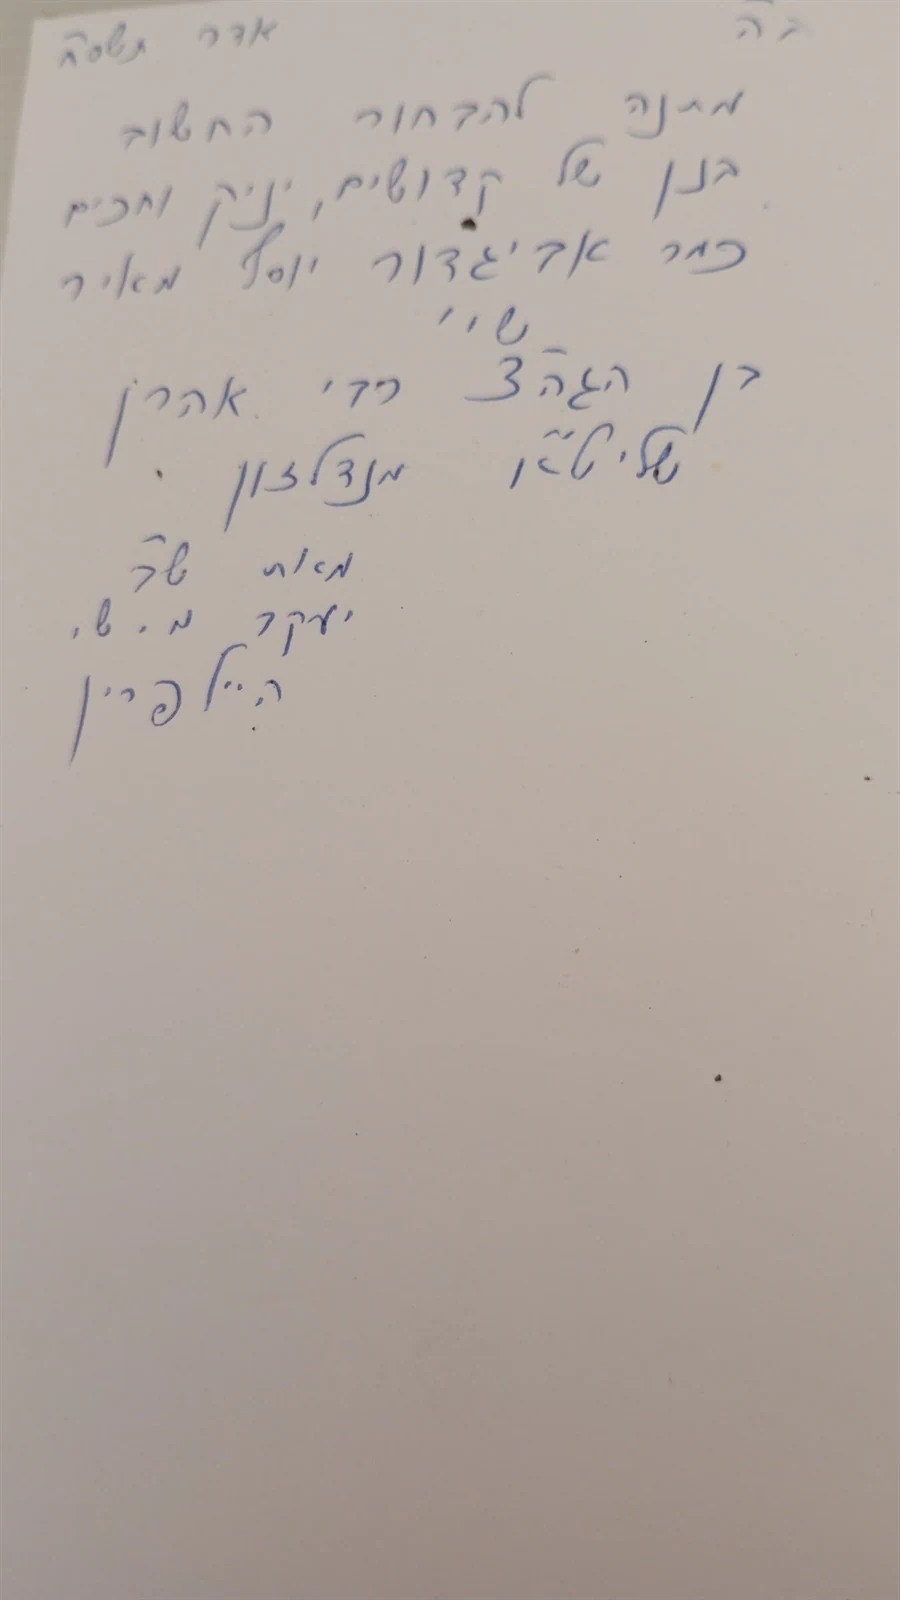 ב"ה אדר תשס"ח
מתנה להבחור החשוב
בנן של קדושים, יניק וחכים
כמר אביגדור יוסף מאיר
שיי'
בן הגה"צ רבי אהרן
שליט"א מנדלזון
מאת ש"ב
יעקב מ. ש.
היילפרין